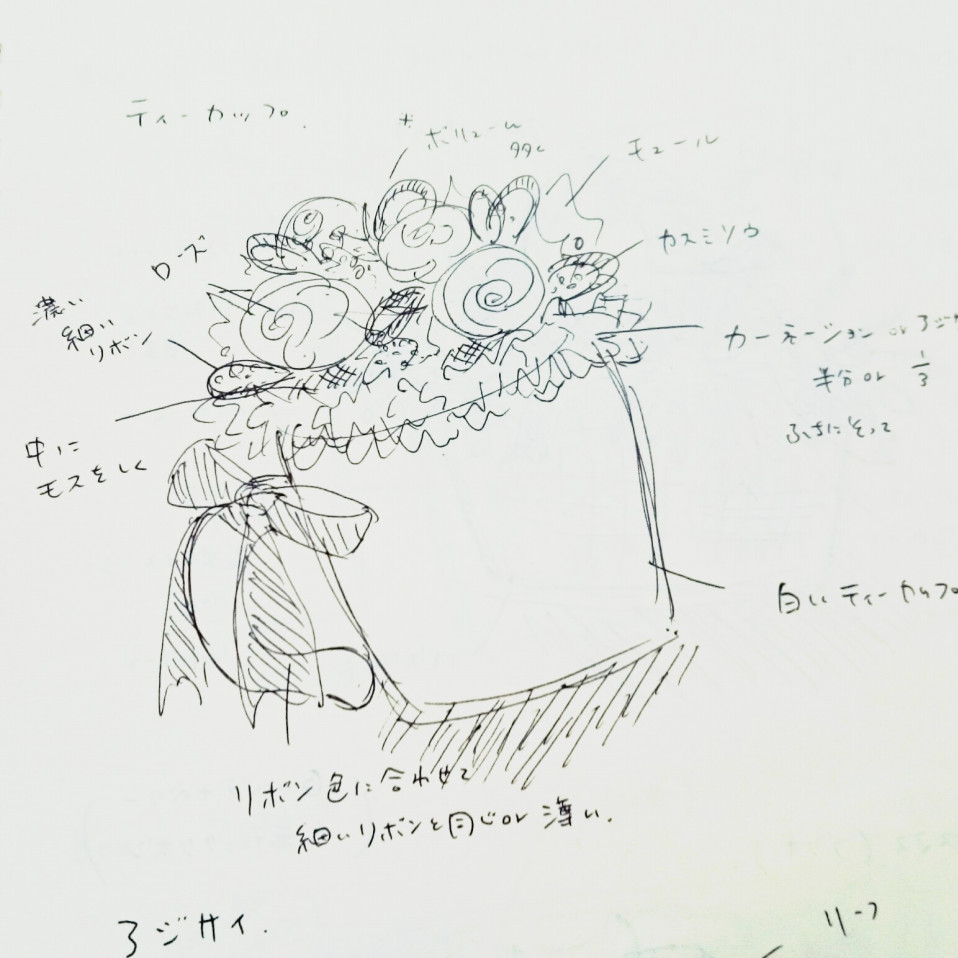 ティーカップ.
ボリューム
モール
カスミソウ
ローズ
濃い
細い
リボン
カーネーション or アジサ
半分 or 1/3
ふちにそって
中に
モスをしく
白いティーカップ
リボン色に合わせて
細いリボンと同じor 薄い.
アジサイ.
リーフ